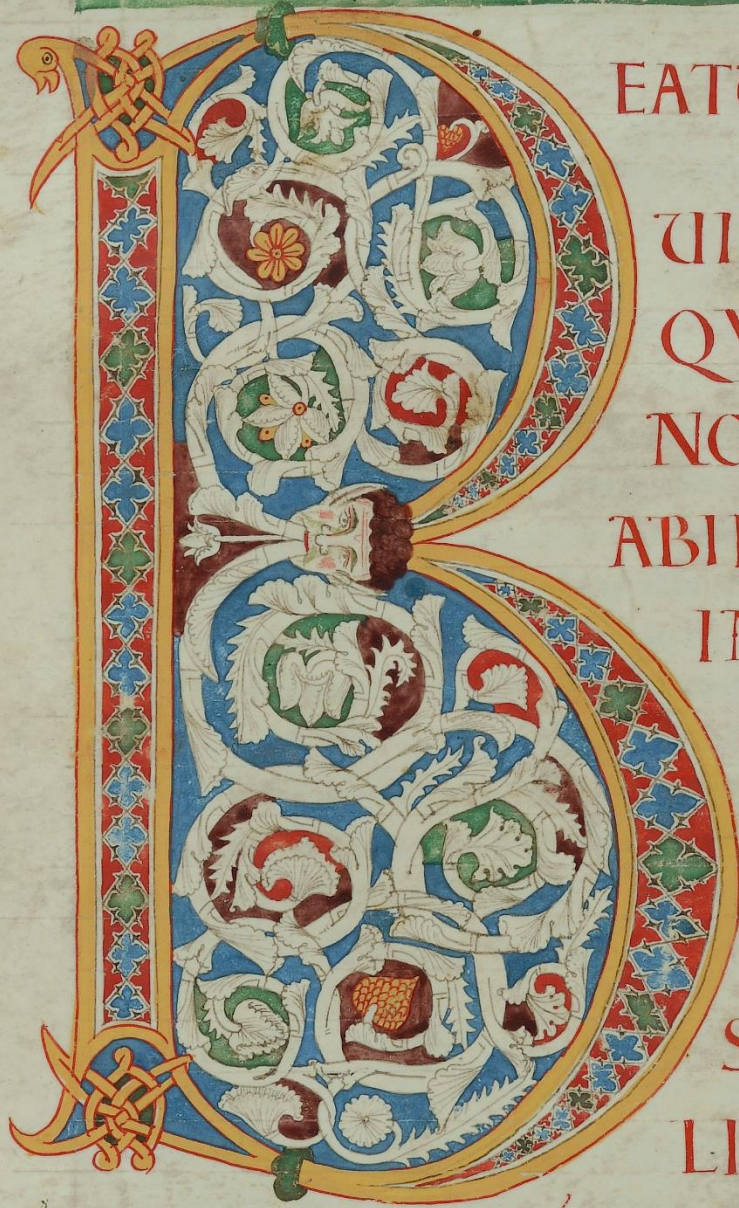 BEATU
UI
QV
NO
ABII
IN
S
LI